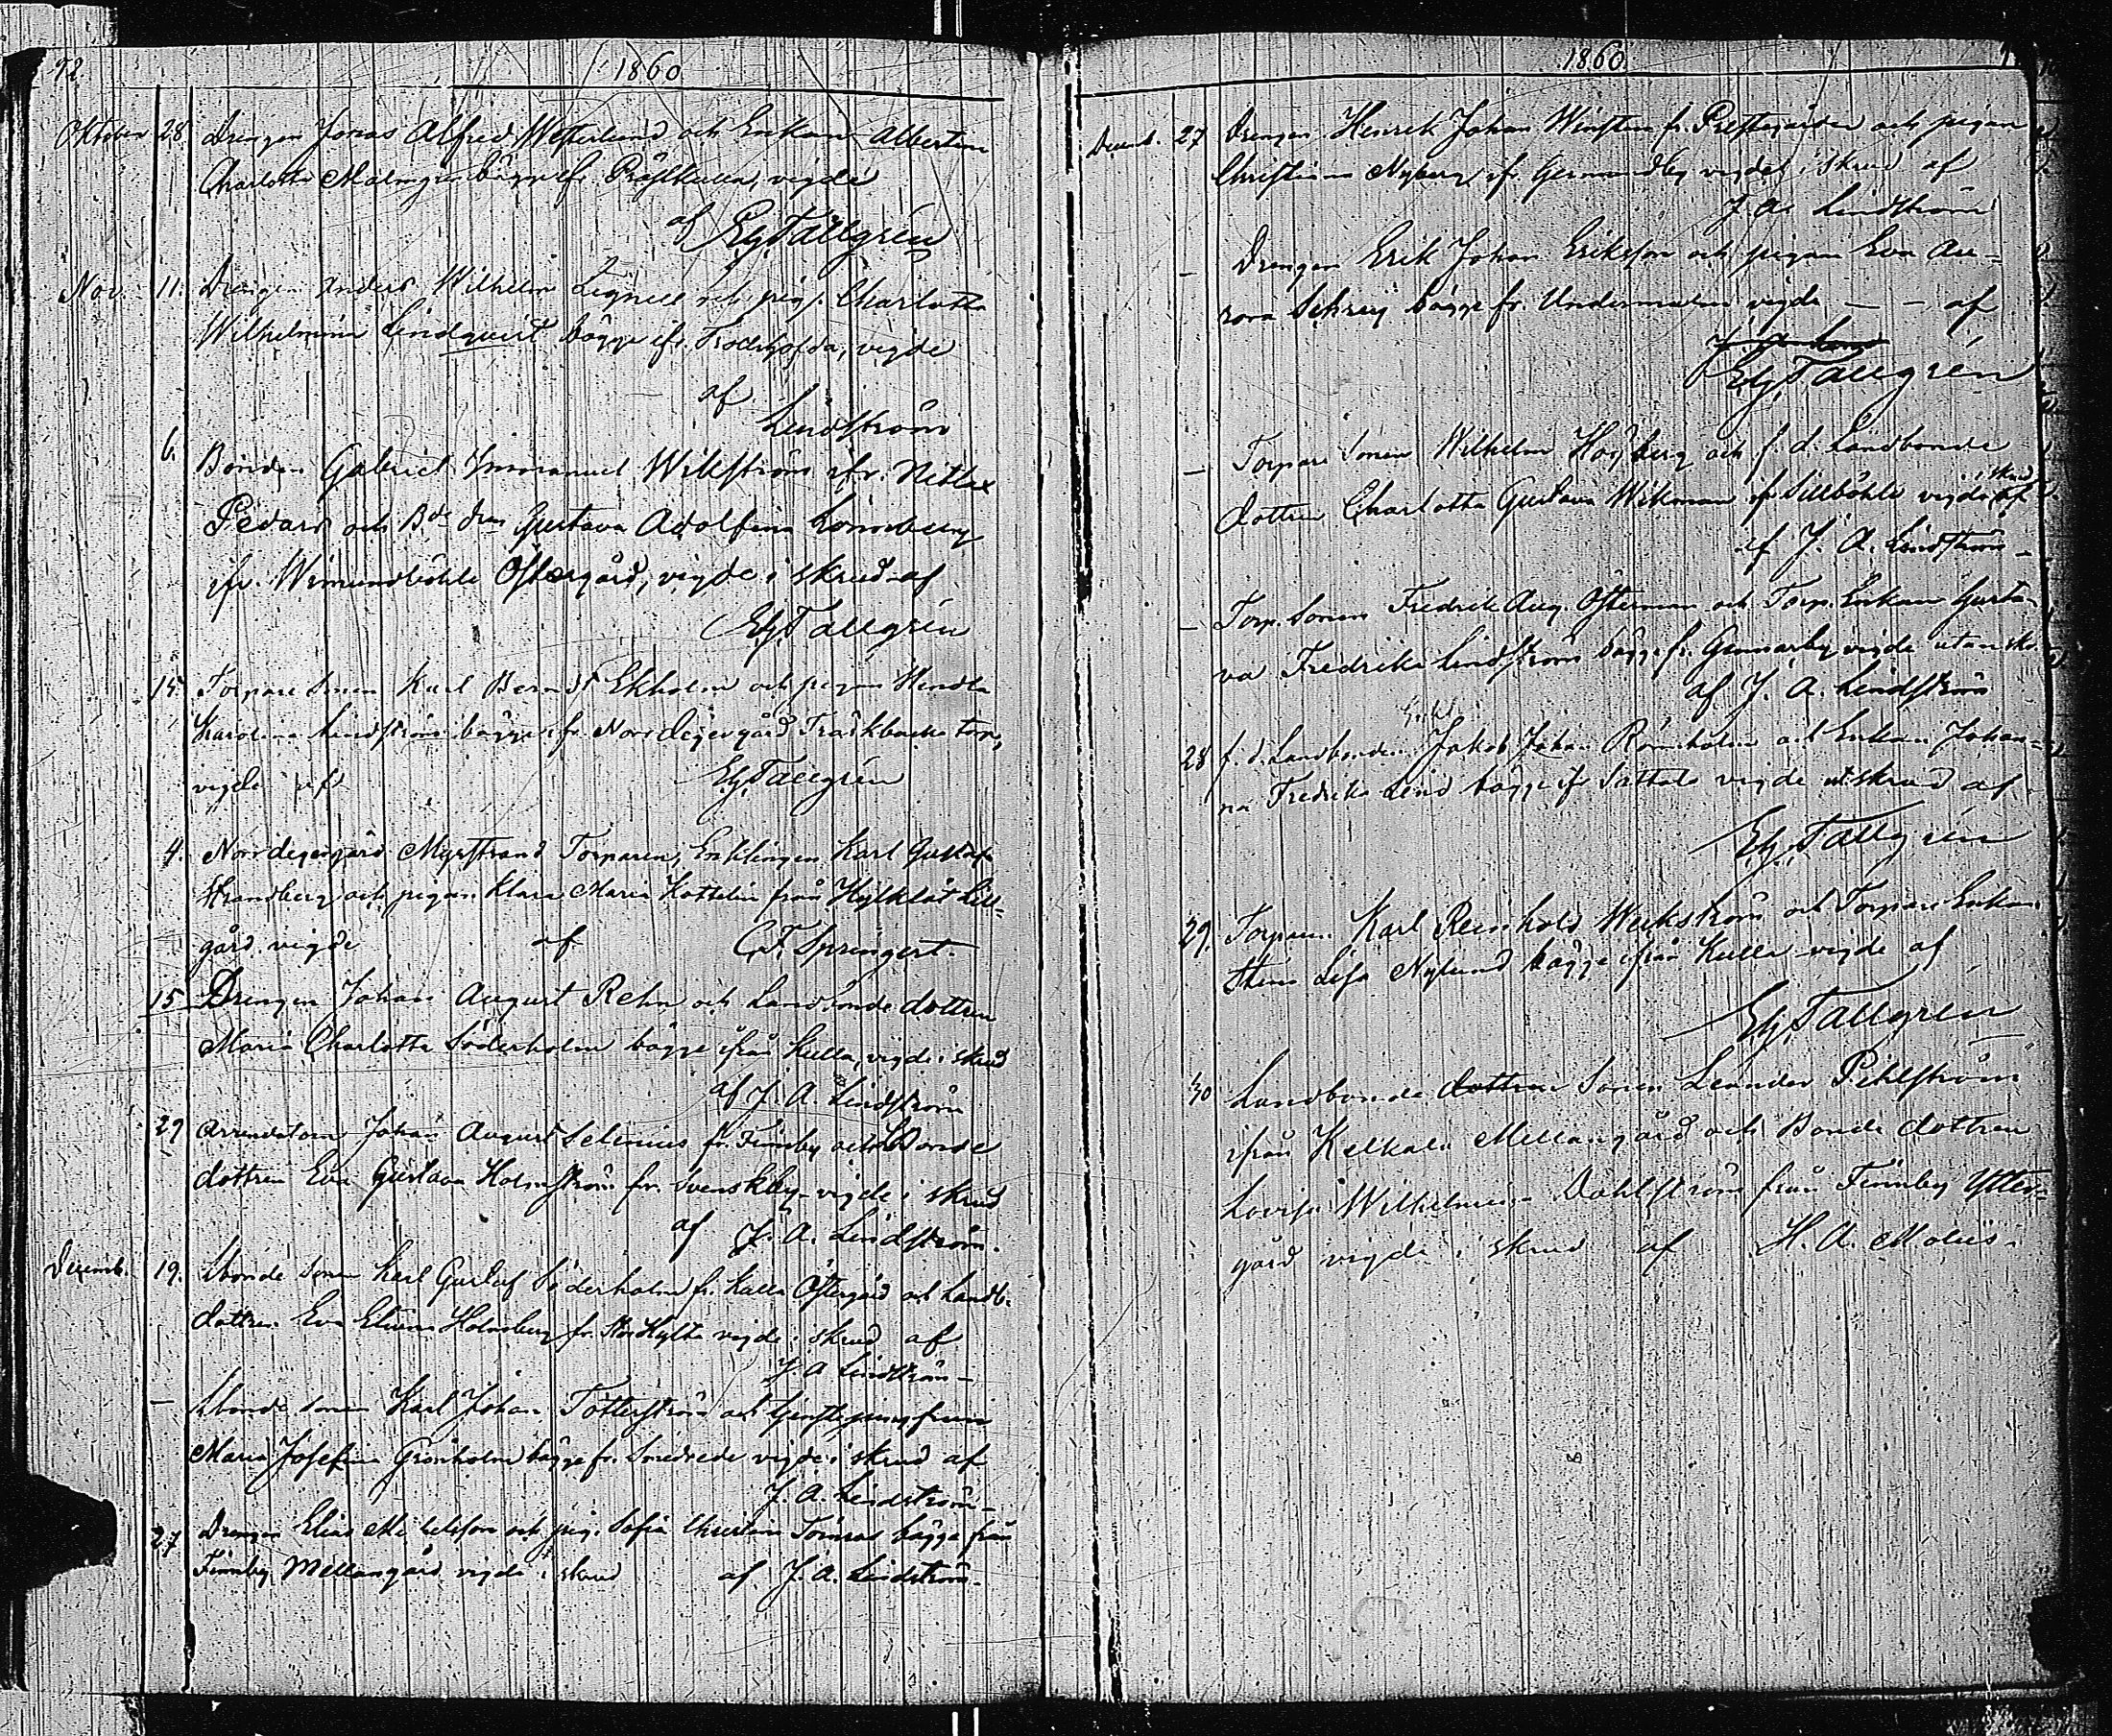 92
1860
Oktober 28. Drengen Jonas Alfred Westerlund och Enkan Albertina
Charlotta Malmgren bägge ifr. Prästkulla, vigde
af Ey. Tallgrén
Nov. 11. Drengen Anders Wilhelm Lignell och pig. Charlotta
Wilhelmina Lindquist bägge ifr. vigde
af
Lindström
6. Bonden Gabriel Immanuel Wikström ifr. Nitlax
Pedars och Bde dren Gustava Adolfina Lönnberg
ifr. Wimundböhle Östergård, vigde i skrud af
Ey. Tallgrén
15. Torpare Sonen Karl Berndt Ekholm och pigan Hendla
Karolina Lindström bägge ifr. Norrdegergård Traskbacka torp,
vigde af Ey. Tallgrén
4. Norrdegergård Myrstrand Torparen, Enklingen Karl Gustaf
Strandberg och pigan Klara Maria Kottelin från Lill-
gård vigde af C. F. Springert.
15 Drengen Johan August Rehn och Landbonde dottren
Maria Charlotta Söderholm bägge ifrån Kulla, vigde i skrud
af J. A. Lindström
29 Arrendatorn Johan August Selenius fr. Finnby och Bonde
dottren Eva Gustava Holmström fr. Svenskby vigde i skrud
af J. A. Lindström.
Decemb. 19. Lbonde sonen Karl Gustaf Söderholm fr. Kulla Östergård och Landb.
dottren Eva Holmberg fr. vigde i skrud af
J. A Lindström –
– Lbonde sonen Karl Johan Totterström och
Maria Josefina Grönholm bägge fr. Smedsede vigde i skrud af
J. A. Lindström –
27 Drengen Elias och pig. Sofia Christina Törnroos bägge från
Finnby Mellangård vigde i skrud af J. A. Lindström –
1860
Decemb. 27 Drengen Henrik Johan Winsten fr. Prestgården och pigan
Christina Nyberg ifr. Germundby vigdes i skrud af
J. A. Lindström
– Drengen Erik Johan Eriksson och pigan Eva Au-
rora bägge fr. Undermalm vigde – – af
Ey. Tallgrén
– Torpare Sonen Wilhelm Högberg och f. d. Landbonde
dottren Charlotta Gustava Wikman ifr. Sillböhle vigde i skrud
af J. A. Lindström –
– Torp. Sonen Fredrik Aug. Österman och Torp. Enkan Gusta-
va Fredrika Lindström bägge fr. Gennarby vigde utan skr.
af J. A. Lindström
28 f. d. Landbonden Enkl. Jakob Johan Rönnholm och Enkan Johan-
na Fredrika Lind bägge ifr. vigde ut. skrud af
Ey. Tallgrén
29. Torparen Karl Reinhold Weckström och Torpare Enkan
Stina Lisa Nylund bägge ifrån Kulla vigde af
Ey. Tallgrén
30 Landbonde dottren Sonen Leander Pihlström
ifrån Kelkala Mellangård och Bonde dottren
Lovisa Wilhelmina Dahlström från Finnby Ytter-
gård vigde i skrud af H. A. Molüs.